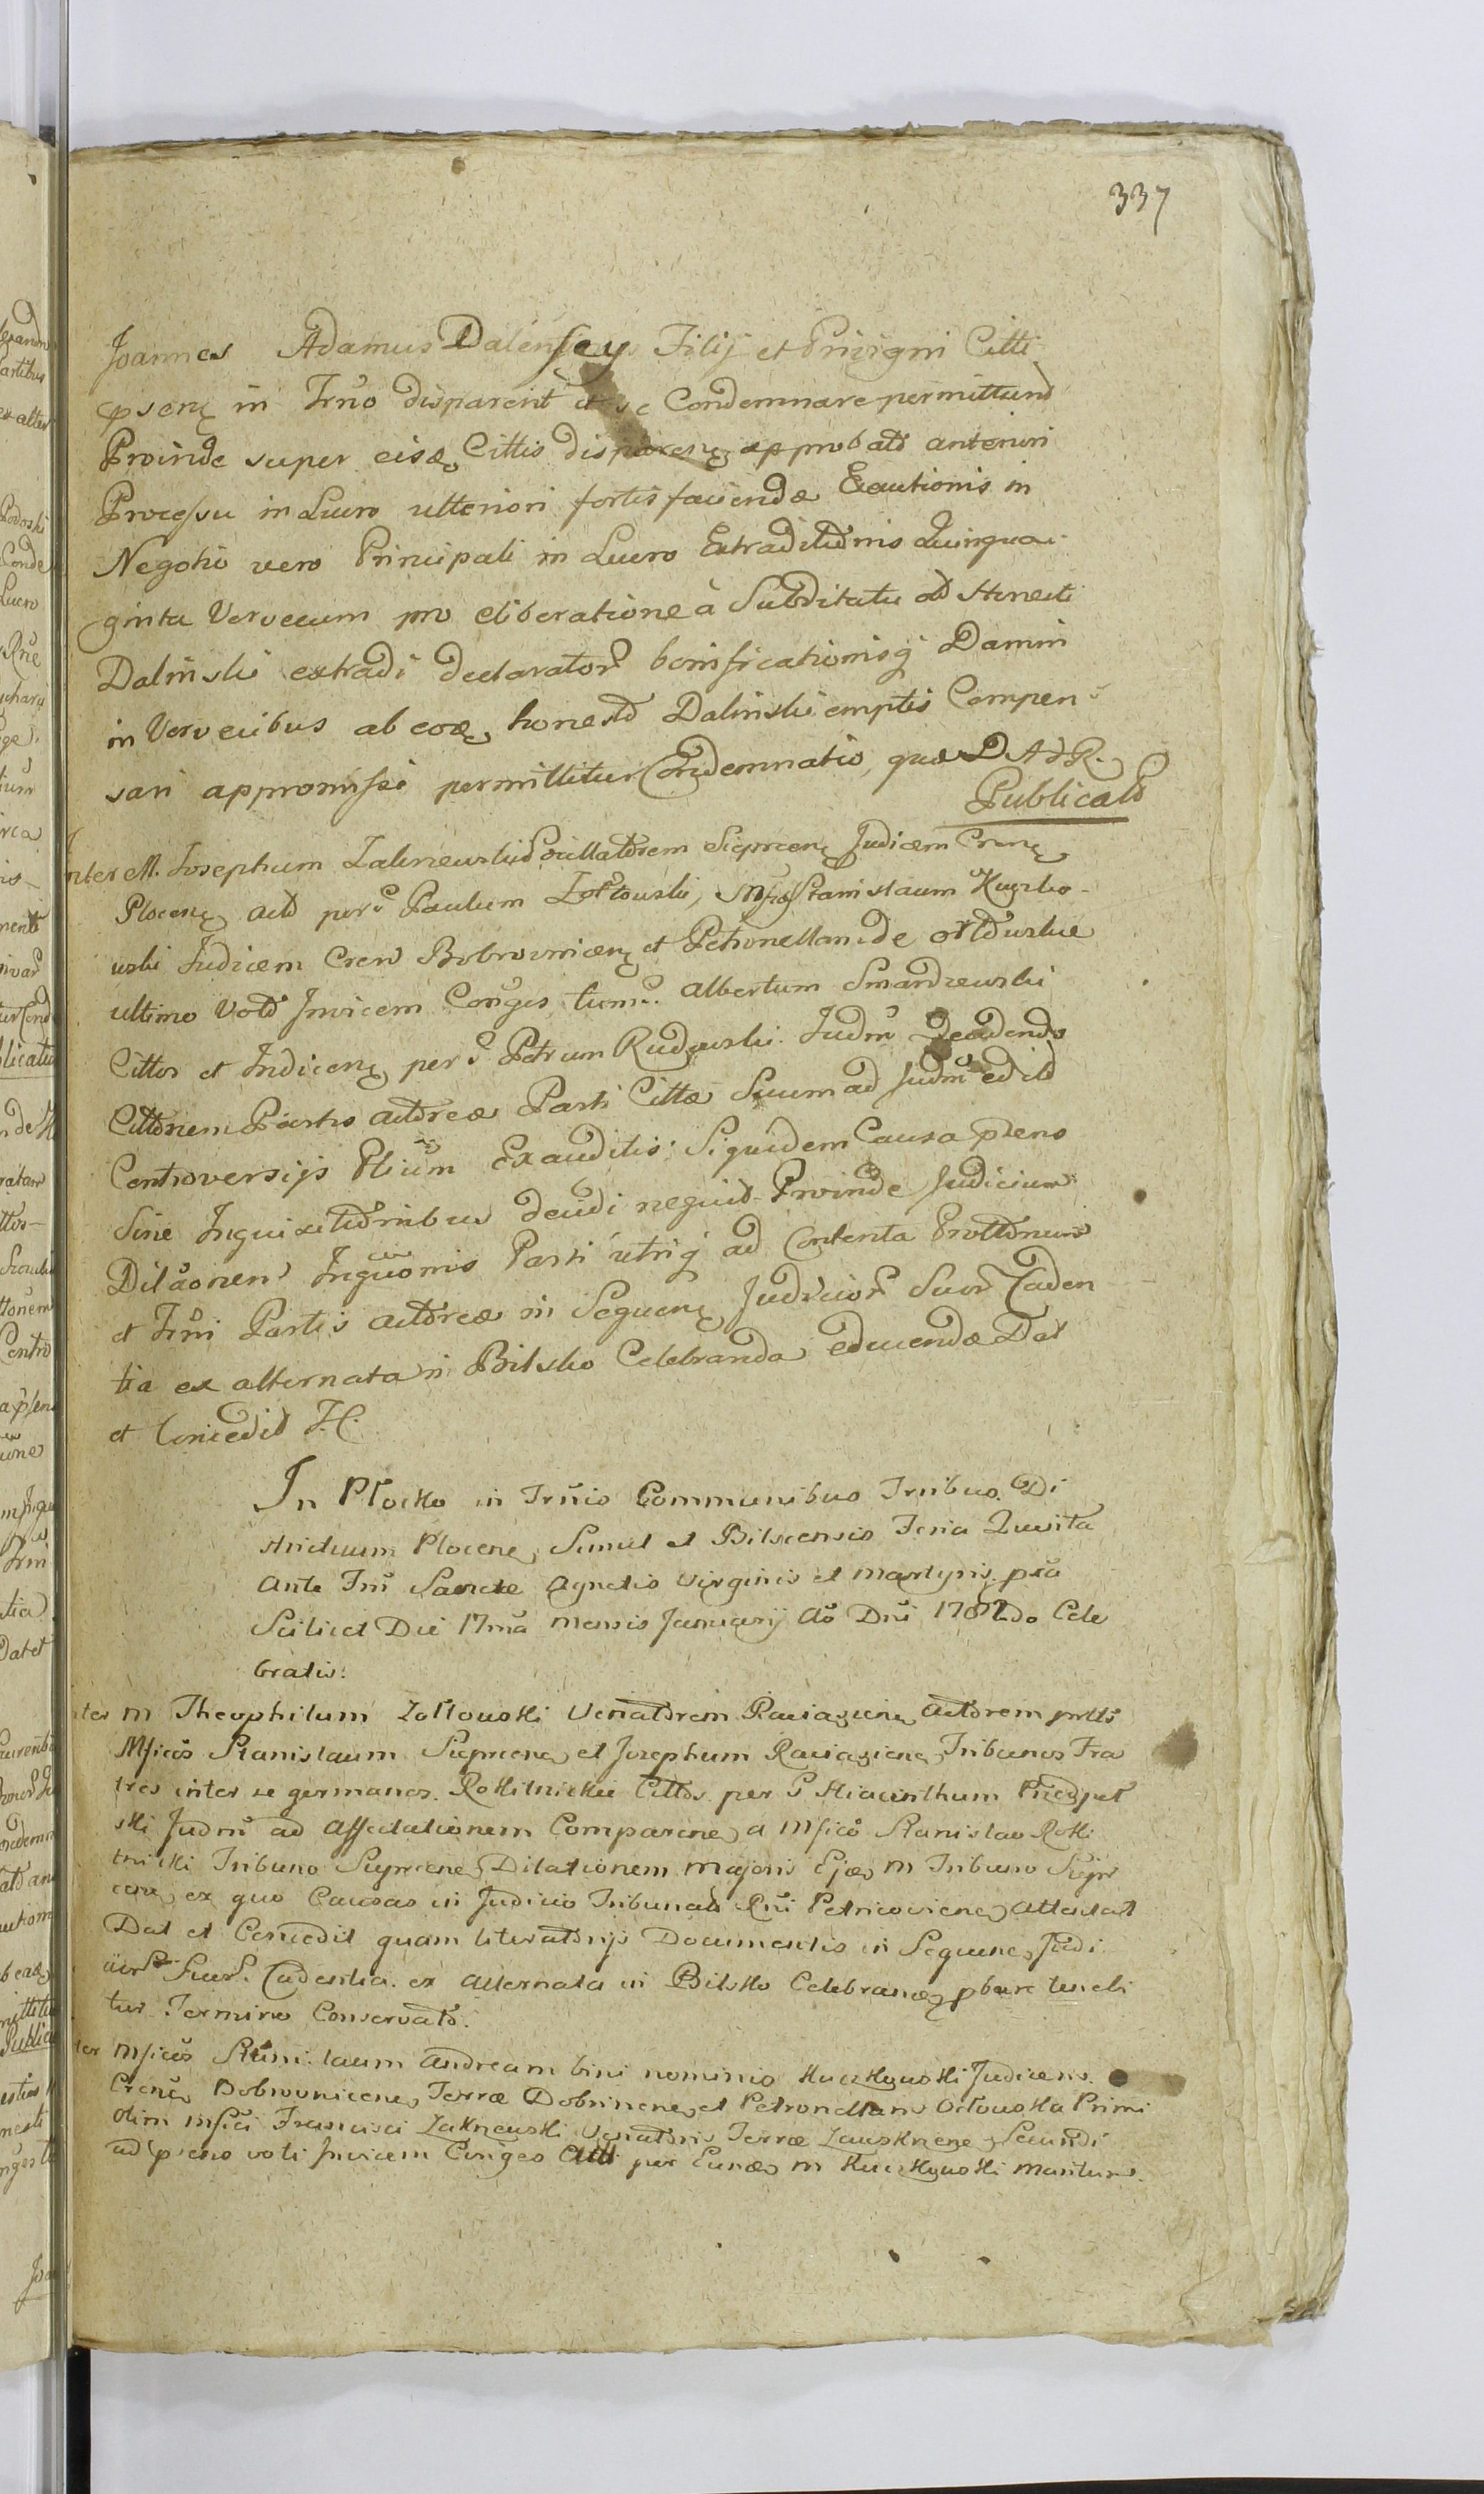 337
Joannes Adamus Dalenscy Filij et Privigni Citti
psenę in Trno disparent et se Condemnare permittunt
Proinde super eisdę Cittis disparenę approbato anteriori
Processu in Lucro ulteriori fortis faciendæ Exactionis in
Negotio vero Principali in Lucro Extraditionis Quinqua
ginta Vervecum pro eliberatione à Subditatu Honesti
Dalinski extradi declarator bonificationisq Damni
in Vervecibus ab eodę honesto Dalinski emptis Compen
sari appromissi permittitur Condemnatio, quæ D A d R.
Publicato
nter M. Josephum Zakrzewski Pocillatorem Sieprcenę Judicem Crenę
Plocenę Actō per Paulum Zołtowski, Mficos Stanislaum Kuczko
wski Judicem Cren Bobrownicenę et Petronellam de
ultimo Voto Invicem Conges tum Albertum Smardzewski
Cittos et Indicenę per Petrum Rudowski Judm Decidendo
Cittōnem Partis actoreæ Parti Cittæ Suum ad Judm edito
Controversijs Ptium Exauditis: Siquidem Causa pleno
Sine Inquisitionibus decidi nequit Proinde Judicium
Dilaōnem Inquōnis Parti utriq ad Contenta Prottōnum
et Trni Partis actoreæ in Sequenę Judicior Suor Caden
tia ex alternata in Bilsko Celebranda educendæ Dat
et Concedit T.C.
In Płocko in Trnis Communibus Trribus Di
strictuum Plocenę Simul et Bilscensis Feria Quinta
Ante Fm Sanctæ Agnetis Virginis et Martyris pxa
Scilicet Die 17ma Mensis Januarij Ao Dni 1782do Cele
bratis:
ter M Theophilum Zołtowski Venatorem Raciązenę Actorem
Mficos Stanislaum Sieprcenę et Josephum Raciązenę Tribunos Fra
tres inter se germanos Rokitnickie Cittōs per G Hiacinthum
ski Judm ad Affectationem Comparenę a Mfico Stanislao Roki
tnicki Tribuno Sieprcenę Dilationem Majoris Ejdę M Tribuno Siepr
cenę ex quo Causas in Judicio Tribunali Rni Petricovienę Attentat
Dat et Concedit quam literatorijs Documentis in Sequenę Judi
cior Suor Cadentia ex Alternata in Bilsko Celebranę pbare tenebi
tur Termino Conservato.
ter Mficos Stanislaum Andream bini nominis Kuczkowski Judicem
Crenę Bobrownicenę Terræ Dobrinenę et Petronellam Octowska Primi
Olim Mfici Francisci Zakrzewski Venatoris Terræ Zawskrzenę Secundi
ad psens voti Invicem Conges per Eundę M Kuczkowski Maritum